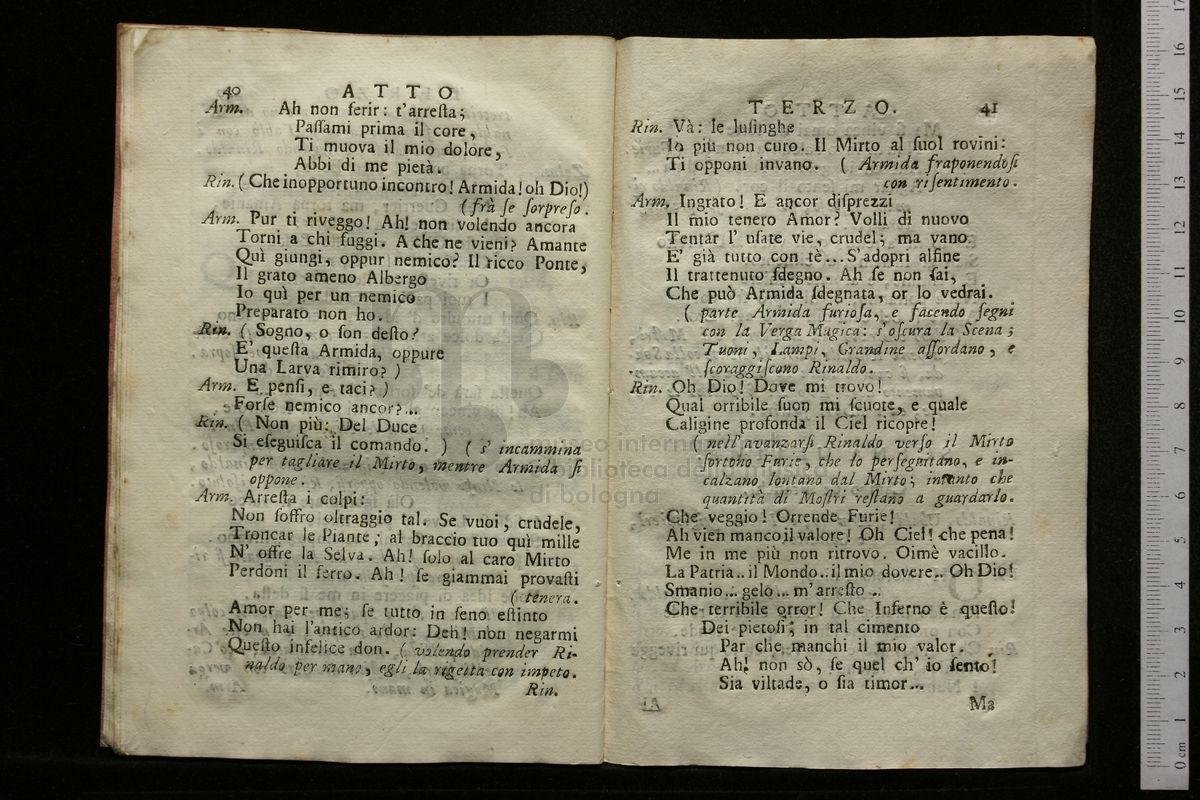 40 ATTO
Arm. Ah non ferir: t'arresta;
Passami prima il core,
Ti muova il mio dolore,
Abbi di me pietà.
Rin. ( Che inopportuno incontro! Armida! oh Dio!)
( frà se sorpreso.
Arm. Pur ti riveggo! Ah! non volendo ancora
Torni a chi fuggi. A che ne vieni? Amante
Quì giungi, oppur nemico? Il ricco Ponte,
Il grato ameno Albergo
Io quì per un nemico
Preparato non ho.
Rin. ( Sogno, o son desto?
E' questa Armida, oppure
Una Larva rimiro? )
Arm. E pensi, e taci? )
Forse nemico ancor?...
Rin. ( Non più: Del Duce
Si eseguisca il comando. ) ( s' incammina
per tagliare il Mirto, mentre Armida si
oppone.
Arm. Arresta i colpi:
Non soffro oltraggio tal. Se vuoi, crudele,
Troncar le Piante, al braccio tuo quì mille
N' offre la Selva. Ah! solo al caro Mirto
Perdoni il ferro. Ah! se giammai provasti
( tenera.
Amor per me; se tutto in seno estinto
Non hai l'antico ardor: Deh! non negarmi
Questo infelice don. ( volendo prender Ri-
naldo per mano, egli la rigetta con impeto.
Rin.
TERZO. 41
Rin. Và: le lusinghe
Io più non curo. Il Mirto al suol rovini:
Ti opponi invano. ( Armida fraponendosi
con risentimento.
Arm. Ingrato! E ancor disprezzi
Il mio tenero Amor? Volli di nuovo
Tentar l' usate vie, crudel; ma vano
E' già tutto con tè... S'adopri alfine
Il trattenuto sdegno. Ah se non sai,
Che può Armida sdegnata, or lo vedrai.
( parte Armida furiosa, e facendo segni
con la Verga Magica: s'oscura la Scena;
Tuoni, Lampi, Grandine assordano, e
scoraggiscono Rinaldo.
Rin. Oh Dio! Dove mi trovo!
Qual orribile suon mi scuote, e quale
Caligine profonda il Ciel ricopre!
( nell' avanzarsi Rinaldo verso il Mirto
sortono Furie, che lo perseguitano, e in-
calzano lontano dal Mirto; intanto che
quantità di Mostri restano a guardarlo.
Che veggio! Orrende Furie!
Ah vien manco il valore! Oh Ciel! che pena!
Me in me più non ritrovo. Oimè vacillo.
La Patria.. il Mondo.. il mio dovere.. Oh Dio!
Smanio... gelo... m'arresto...
Che terribile orror! Che Inferno è questo!
Dei pietosi, in tal cimento
Par che manchi il mio valor.
Ah! non sò, se quel ch' io sento!
Sia viltade, o sia timor...
Ma
museo internazionale
biblioteca della musica
di bologna
0 cm 1 2 3 4 5 6 7 8 9 10 11 12 13 14 15 16 17